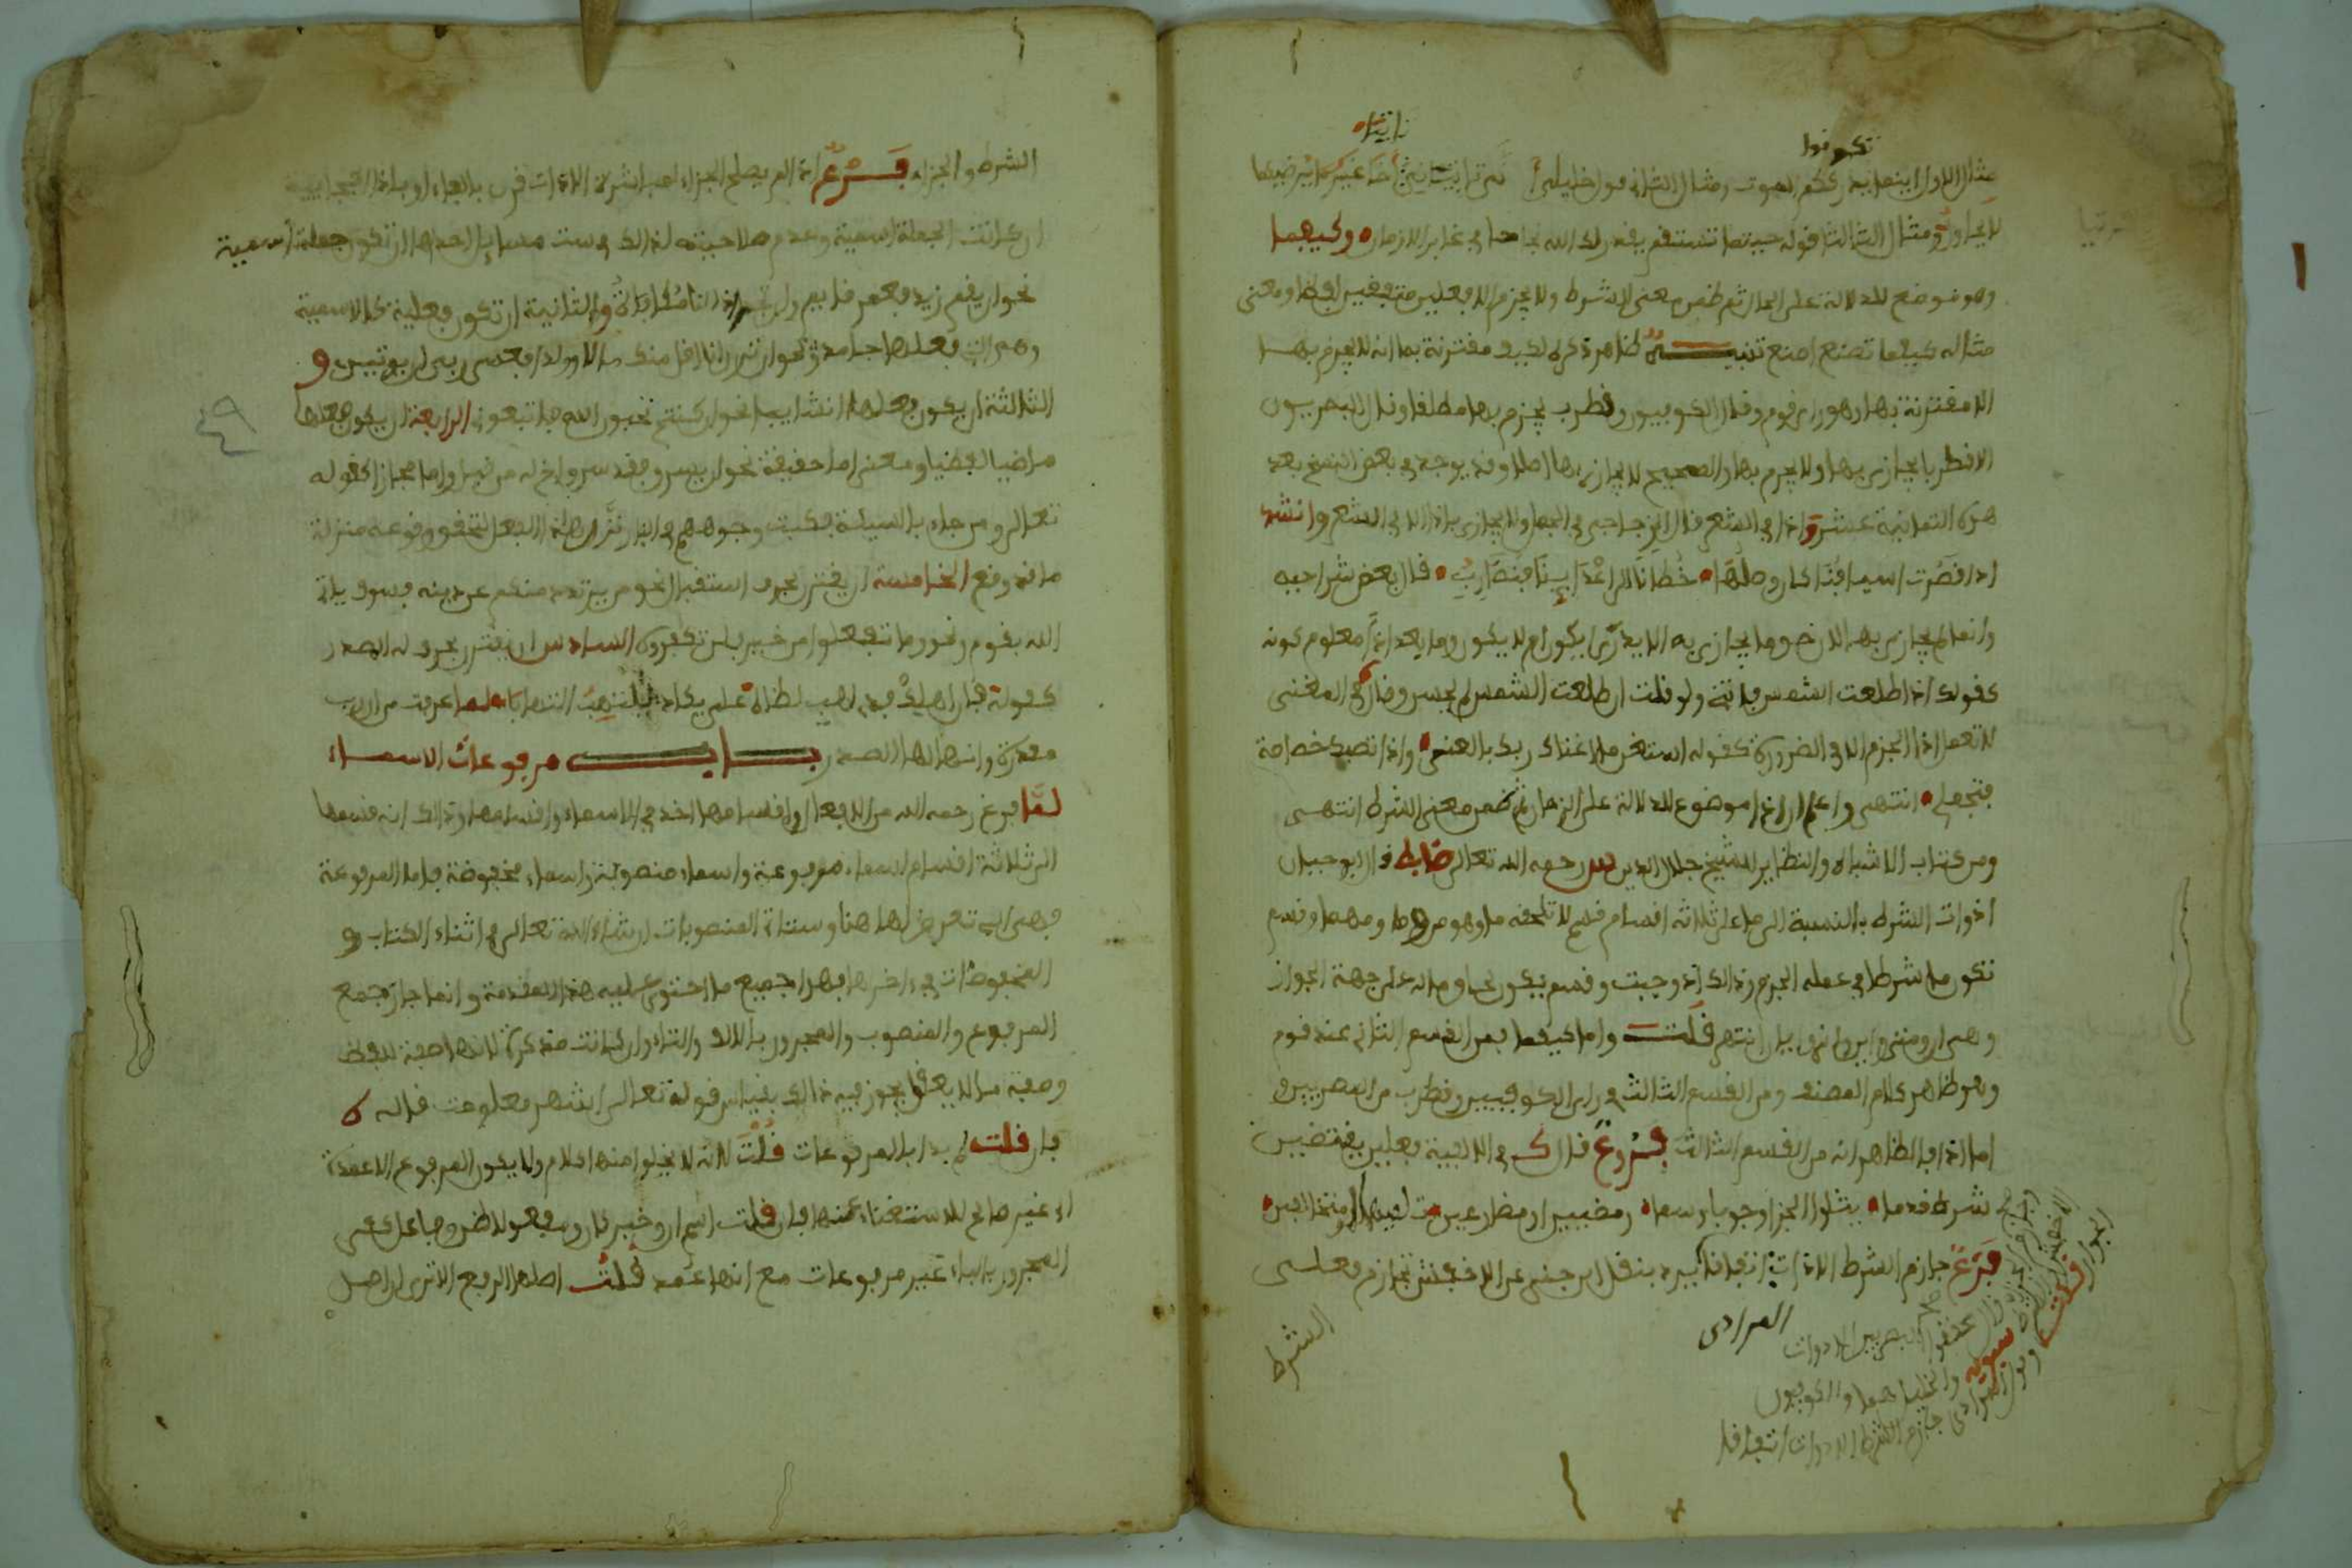 تكونوا
تاتياه
مثال الاول اينما يدرككم الموت ومثال الثاني قول خليلي أنى تاتياني تاتيا أخا غير ما يرضيكما
لا يحاول ومثال الثالث قوله حيثما تستقم يقدر لك الله نجاحا في غابر الازمان وكيفما
وهو موضع للدلالة على الحال ثم ضمن معنى الشرط ولا يجزم الا فعلين متفقين لفظا ومعنى
مثاله كيفما تصنع اصنع تنبيه ظاهر ذكره لكيف مقترنة بما انه لا يجزم بها
الا مقترنة بها وهو راي قوم وقال الكوفيون وقطرب يجزم بها مطلقا وقال البصريون
الا قطربا يجازى بها ولا يجزم بها والصحيح لا يجازى بها اصلا وقد يوجد في بعض النسخ بعد
هذه الثمانية عشر واذا في الشعر قال الزجاجي في الجمل ولا يجازى باذا الا في الشعر وانشد
اذا قصرت اسيافنا كان وصلها خطانا الى اعدائنا فنضارب قال بعض شراحه
وانما لم يجازى بها لان حق ما يجازى به الا يدرى ايكون ام لا يكون وما بعد اذا معلوم كونه
كقولك اذا طلعت الشمس فاتني ولو قلت ان طلعت الشمس لم يحسن وقال في المغني
لا تعمل اذا الجزم الا في الضرورة كقوله استغن ما اغناك ربك بالغنى واذا تصبك خصاصة
فتجمل انتهى واعلم ان اذا موضوع للدلالة على الزمان ثم ضمن معنى الشرط انتهى
ومن كتاب الاشباه والنظاير للشيخ جلال الدين رحمه الله تعالى ضابط قال ابو حيان
ادوات الشرط بالنسبة الى ما على ثلاثة اقسام قسم لا تلحقه ما وهو من وما ومهما وقسم
تكون ما شرطا في عمله الجزم وذالك اذ وحيث وقسم يكون لحاق ما له على جهة الجواز
وهي ان ومتى واين واي وايان انتهى قلت واما كيفما فمن القسم الثاني عند قوم
وهو ظاهر كلام المصنف ومن القسم الثالث في راي الكوفيين وقطرب من البصريين و
اما اذا فالظاهر انه من القسم الثالث فروع قال ك في الالفية فعلين يقتضين
شرط قدما يتلو الجزا وجوابا وسما وماضيين او مضارعين تلفيهما او متخالفين
فرع جازم الشرط الادات اتفاقا ويرد بنقل ابن جني عن الاخفش تجازم فعلي
الشرط
المرادي
الشرط والجزاء فرع اذا لم يصلح الجزاء لمباشرة الادات قرن بالفاء او باذا الفجايية
ان كانت الجملة اسمية وعدم صلاحيته لذالك في ست مسايل احداها ان تكون جملة اسمية
نحو ان يقم زيد فعمر قايم وان تجد اذا لنا مكافاة والثانية ان تكون فعلية كالاسمية
وهي التي فعلها جامد نحو ان ترن انا اقل منك مالا وولدا فعسى ربي ان يوتين و
الثالثة ان يكون فعلها انشاييا نحو ان كنتم تحبون الله فاتبعوني الرابعة ان يكون فعلها
ماضيا لفظا ومعنى اما حقيقة نحو ان يسرق فقد سرق اخ له من قبل واما مجازا كقوله
تعالى ومن جاء بالسيئة فكبت وجوههم في النار نزل هذا الفعل لتحقق وقوعه منزلة
ما قد وقع الخامسة ان يقترن بحرف استقبال نحو من يرتدد منكم عن دينه فسوف ياتي
الله بقوم ونحو وما تفعلوا من خير فلن تكفروه السادس ان يقترن بحرف له الصدر
كقوله فان اهلك فذي لهب لظاه علي يكاد يلتهب التهابا لما عرفت من ان رب
مقدرة وانها لها الصدر باب مرفوعات الاسماء
لما فرغ رحمه الله من الافعال واقسامها اخذ في الاسماء واقسامها وذالك انه قسمها
الى ثلاثة اقسام اسماء مرفوعة واسماء منصوبة واسماء مخفوضة فاما المرفوعة
فهي التي تعرض لها هنا وستاتي المنصوبات ان شاء الله تعالى في اثناء الكتاب و
المخفوضات في اخره فهذا جميع ما احتوى عليه هذه المقدمة وانما جاز جمع
المرفوع والمنصوب والمجرور بالالف والتاء وان كانت مذكرة لانها صفة للفظ
وصفة ما لا يعقل يجوز فيه ذالك بقياس قوله تعالى اشهر معلومت قاله ك
فان قلت لم بدا بالمرفوعات قلت لانه لا يخلو منها كلام ولا يكون المرفوع الا عمدة
اي غير صالح للاستغناء عنها فان قلت اسم ان وخبر كان ومفعولا ظن وفاعل كفى
المجرور بالباء غير مرفوعات مع انها عمد قلت اصلها الرفع الا ترى ان اصل
٤٩